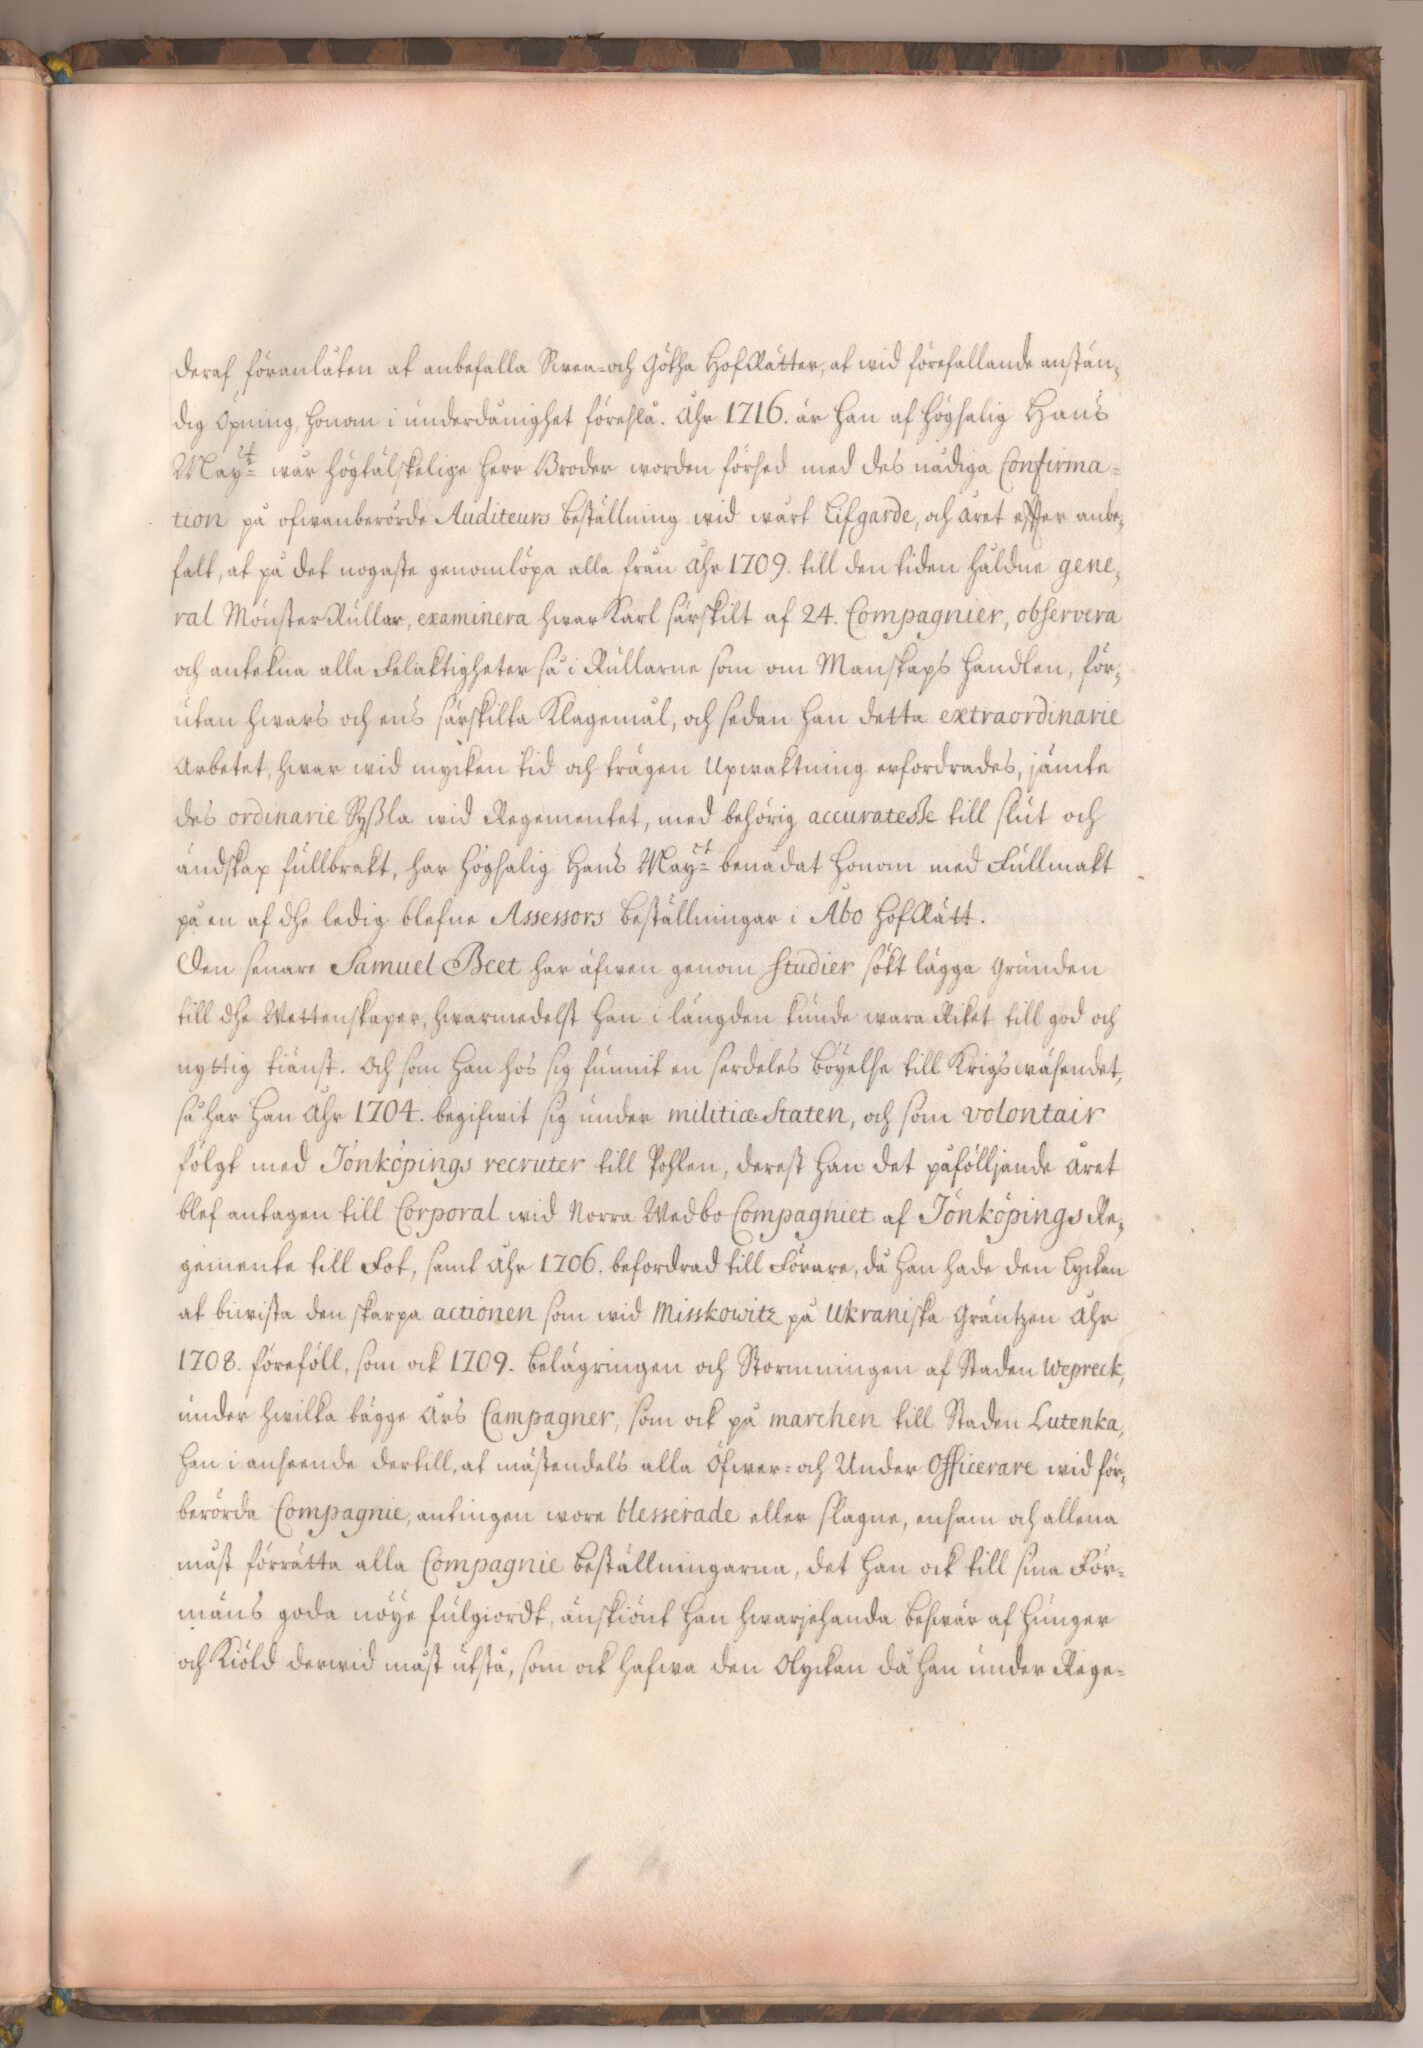 deraf föranlåten at anbefalla Svea- och Götha HofRätter, at wid förefallande anstän-
dig Öpning, honom i underdånighet föreslå. Åhr 1716. är han af Högsalig Hans
Mayt:s wår Högtälskelige Herr Broder worden försed med des nådiga Confirma-
tion på ofwanberörde Auditeurs beställning wid wårt Lifgarde, och året efter anbe-
falt, at på det nogaste genomlöpa alla från Åhr 1709. till den tiden håldne gene-
ral MönsterRullar, examinera hwar Karl särskilt af 24. Compagnier, observera
och antekna alla Felaktigheter så i Rullarne som om Manskaps handlen, för-
utan hwars och ens särskilta Klagemål, och sedan han detta extraordinarie
Arbetet, hwar wid mycken tid och trägen Upwaktning erfordrades, jämte
des ordinarie Syßla wid Regementet, med behörig accurateße till slut och
ändskap fullbrakt, har Högsalig Hans Mayt: benådat honom med Fullmakt
på en af dhe ledig blefne Assessors beställningar i Åbo HofRätt.
Den senare Samuel Beet har äfwen genom studier sökt lägga Grunden
till dhe Wettenskaper, hwarmedelst han i längden kunde wara Riket till god och
nyttig tiänst. Och som han hos sig funnit en serdeles böyelse till Krigswäsendet,
så har han Åhr 1704. begifwit sig under militiæ Staten, och som volontair
följgt med Jönköpings recruter till Pohlen, derest han det påfölljande året
blef antagen till Corporal wid Norra Wedbo Compagniet af Jönköpings Re-
gemente till Fot, samt Åhr 1706. befordrad till Förare, då han hade den Lyckan
at biwista den skarpa actionen som wid Misskowitz på Ukraniska Gräntzen Åhr
1708. föreföll, som ock 1709. belägringen och Stormningen af Staden Wepreck,
under hwilka bägge Års Campagner, som ock på marchen till Staden Lutenka,
han i anseende dertill, at mästendels alla Öfwer- och Under Officerare wid för-
berörda Compagnie, antingen wore blesserade eller slagne, ensam och allena
måst förrätta alla Compagnie beställningarna, det han ock till sina För-
mäns goda nöye fulgiordt, änskiönt han hwarjehanda beswär af Hunger
och Kiöld derwid måst utstå, som ock hafwa den Olyckan då han under Rege-